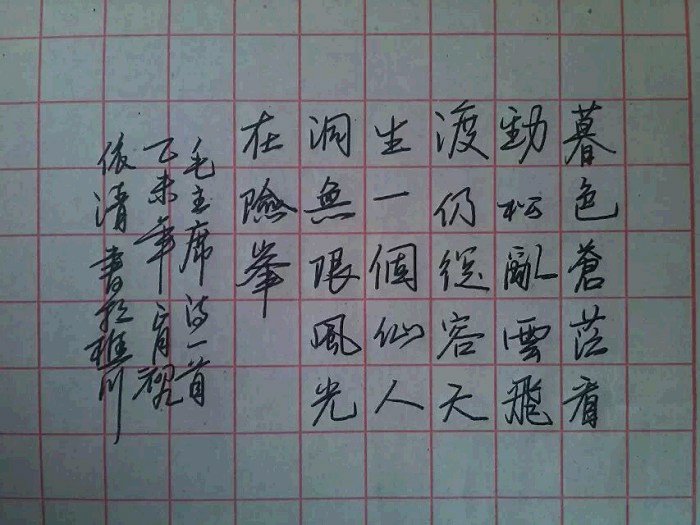 暮色蒼茫看
勁松亂雲飛
渡仍從容天
生一個仙人
洞無限風光
在險峯
毛主席诗一首
乙未年
依清書於